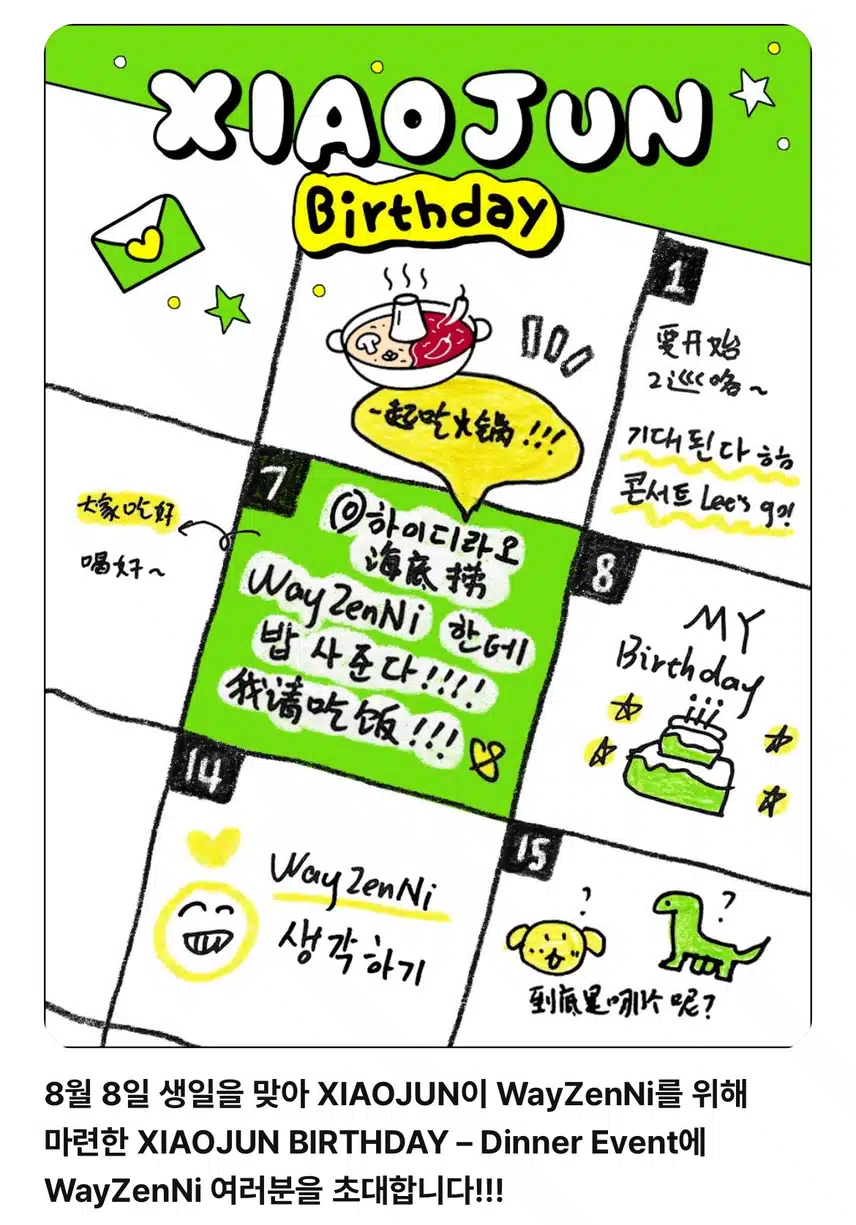 XIAOJUN
Birthday
1
要开始
2巡巡咯~
기대된다 ㅎㅎ
콘서트 Lee's go!
一起吃火锅!!!
7
하이디라오
海底捞
WayZenNi 한테
밥 사준다!!!!
我请吃饭!!!
大家吃好
喝好~
8
MY
Birthday
14
WayZenNi
생각하기
15
? ?
到底是哪个呢?
8월 8일 생일을 맞아 XIAOJUN이 WayZenNi를 위해
마련한 XIAOJUN BIRTHDAY – Dinner Event에
WayZenNi 여러분을 초대합니다!!!